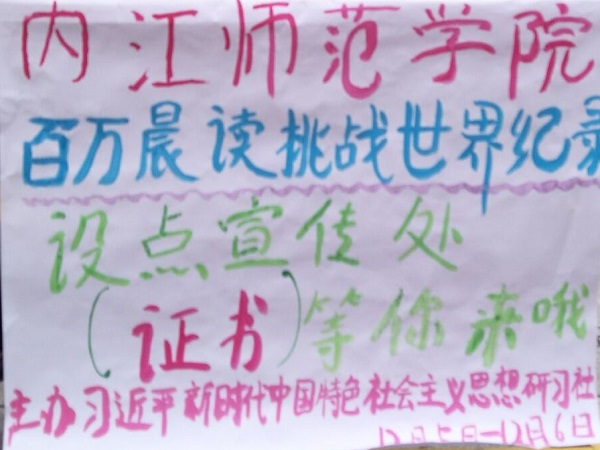 内江师范学院
百万晨读挑战世界纪录
设点宣传处
(证书)等你来哦
主办习近平新时代中国特色社会主义思想研习社
12月5日-12月6日